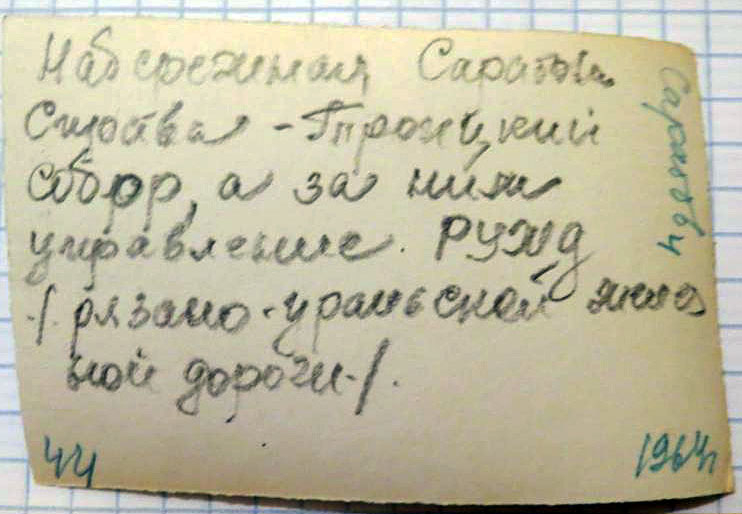 Набережная Саратова.
Справа - Троицкий
собор, а за ним
управление. РУЖД
-/. рязано-уральской желез
ной дороги-/.
44
1964г